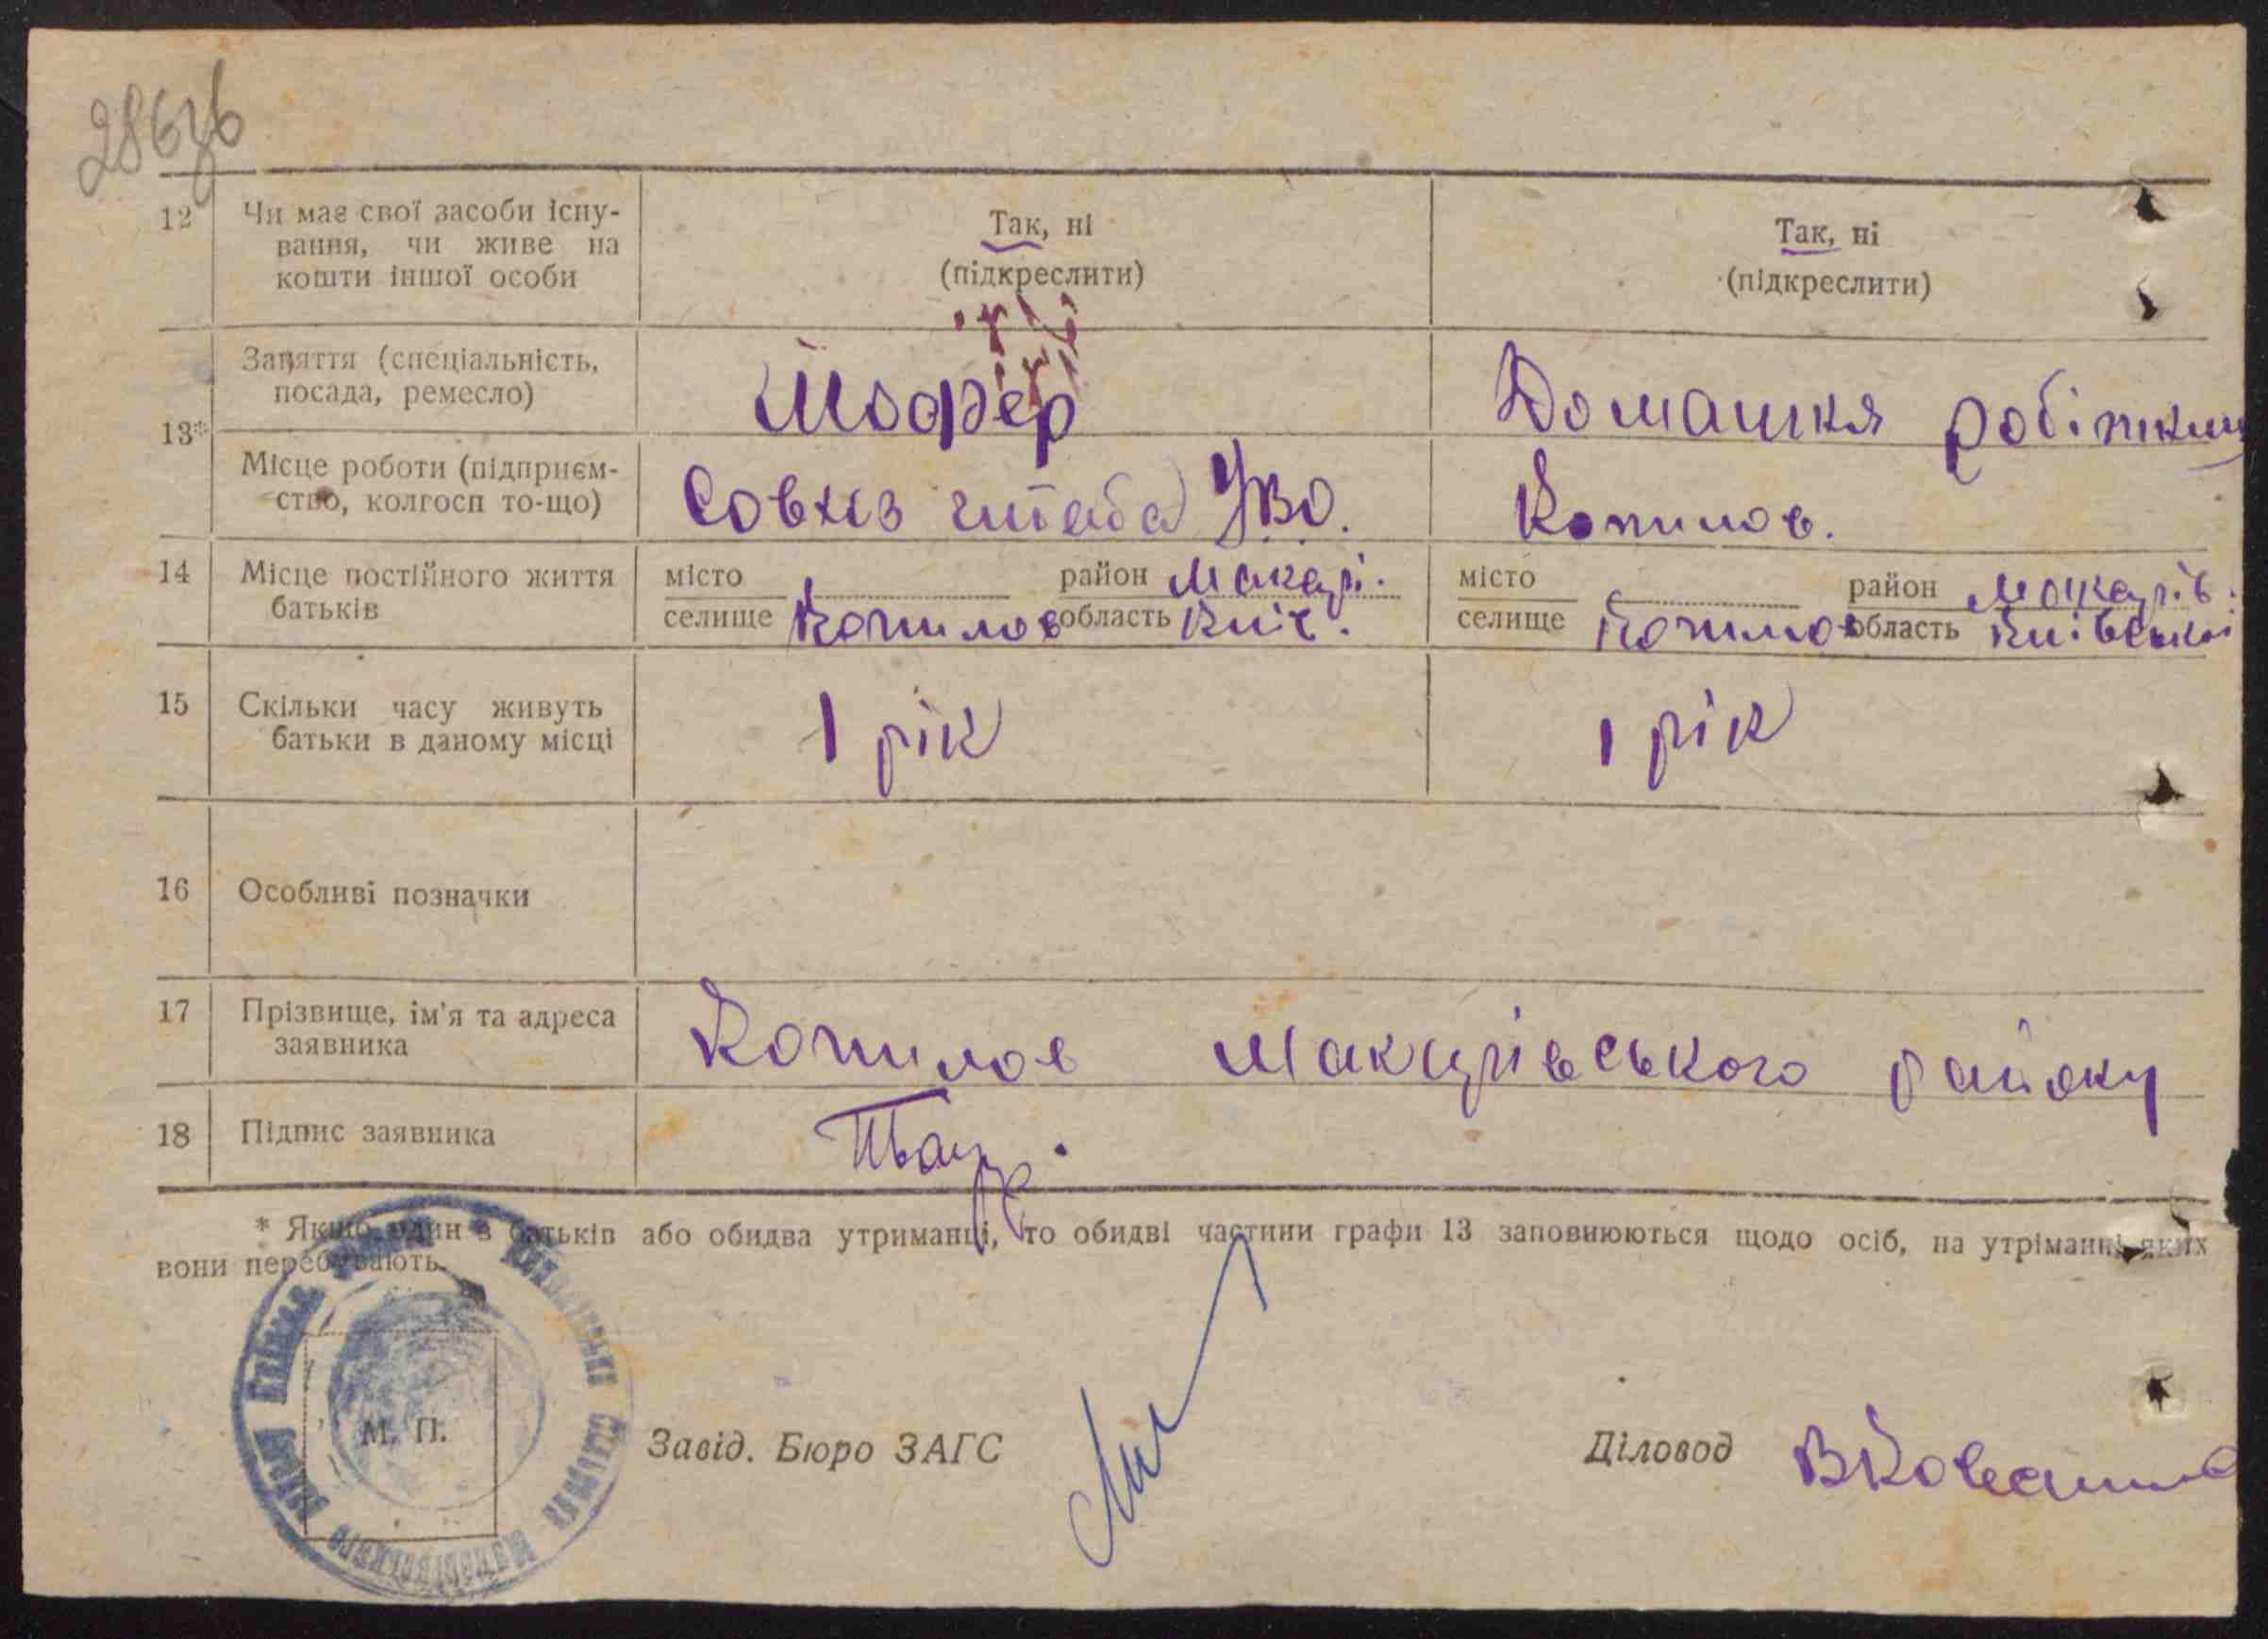 12 Чи має свої засоби існу-
вання, чи живе на
кошти іншої особи
Так, ні
(підкреслити)
Так, ні
(підкреслити)
13*
Заняття (спеціальність,
посада, ремесло)
Шофер
Домашня робітниц
Місце роботи (підприєм-
ство, колгосп то-що)
Совхіз штаба УВО.
Копилов.
14 Місце постійного життя
батьків
місто
селище Копилов
район Макарі.
область Київ.
місто
селище Копилов
район Макарів.
область Київської
15 Скільки часу живуть
батьки в даному місці
1 рік
1 рік
16 Особливі позначки
17 Прізвище, ім'я та адреса
заявника
Копилов Макарівського району
18 Підпис заявника
* Якщо один з батьків або обидва утриманці, то обидві частини графи 13 заповнюються щодо осіб, на утріманні яких
вони перебувають.
М. П.
Завід. Бюро ЗАГС
Діловод